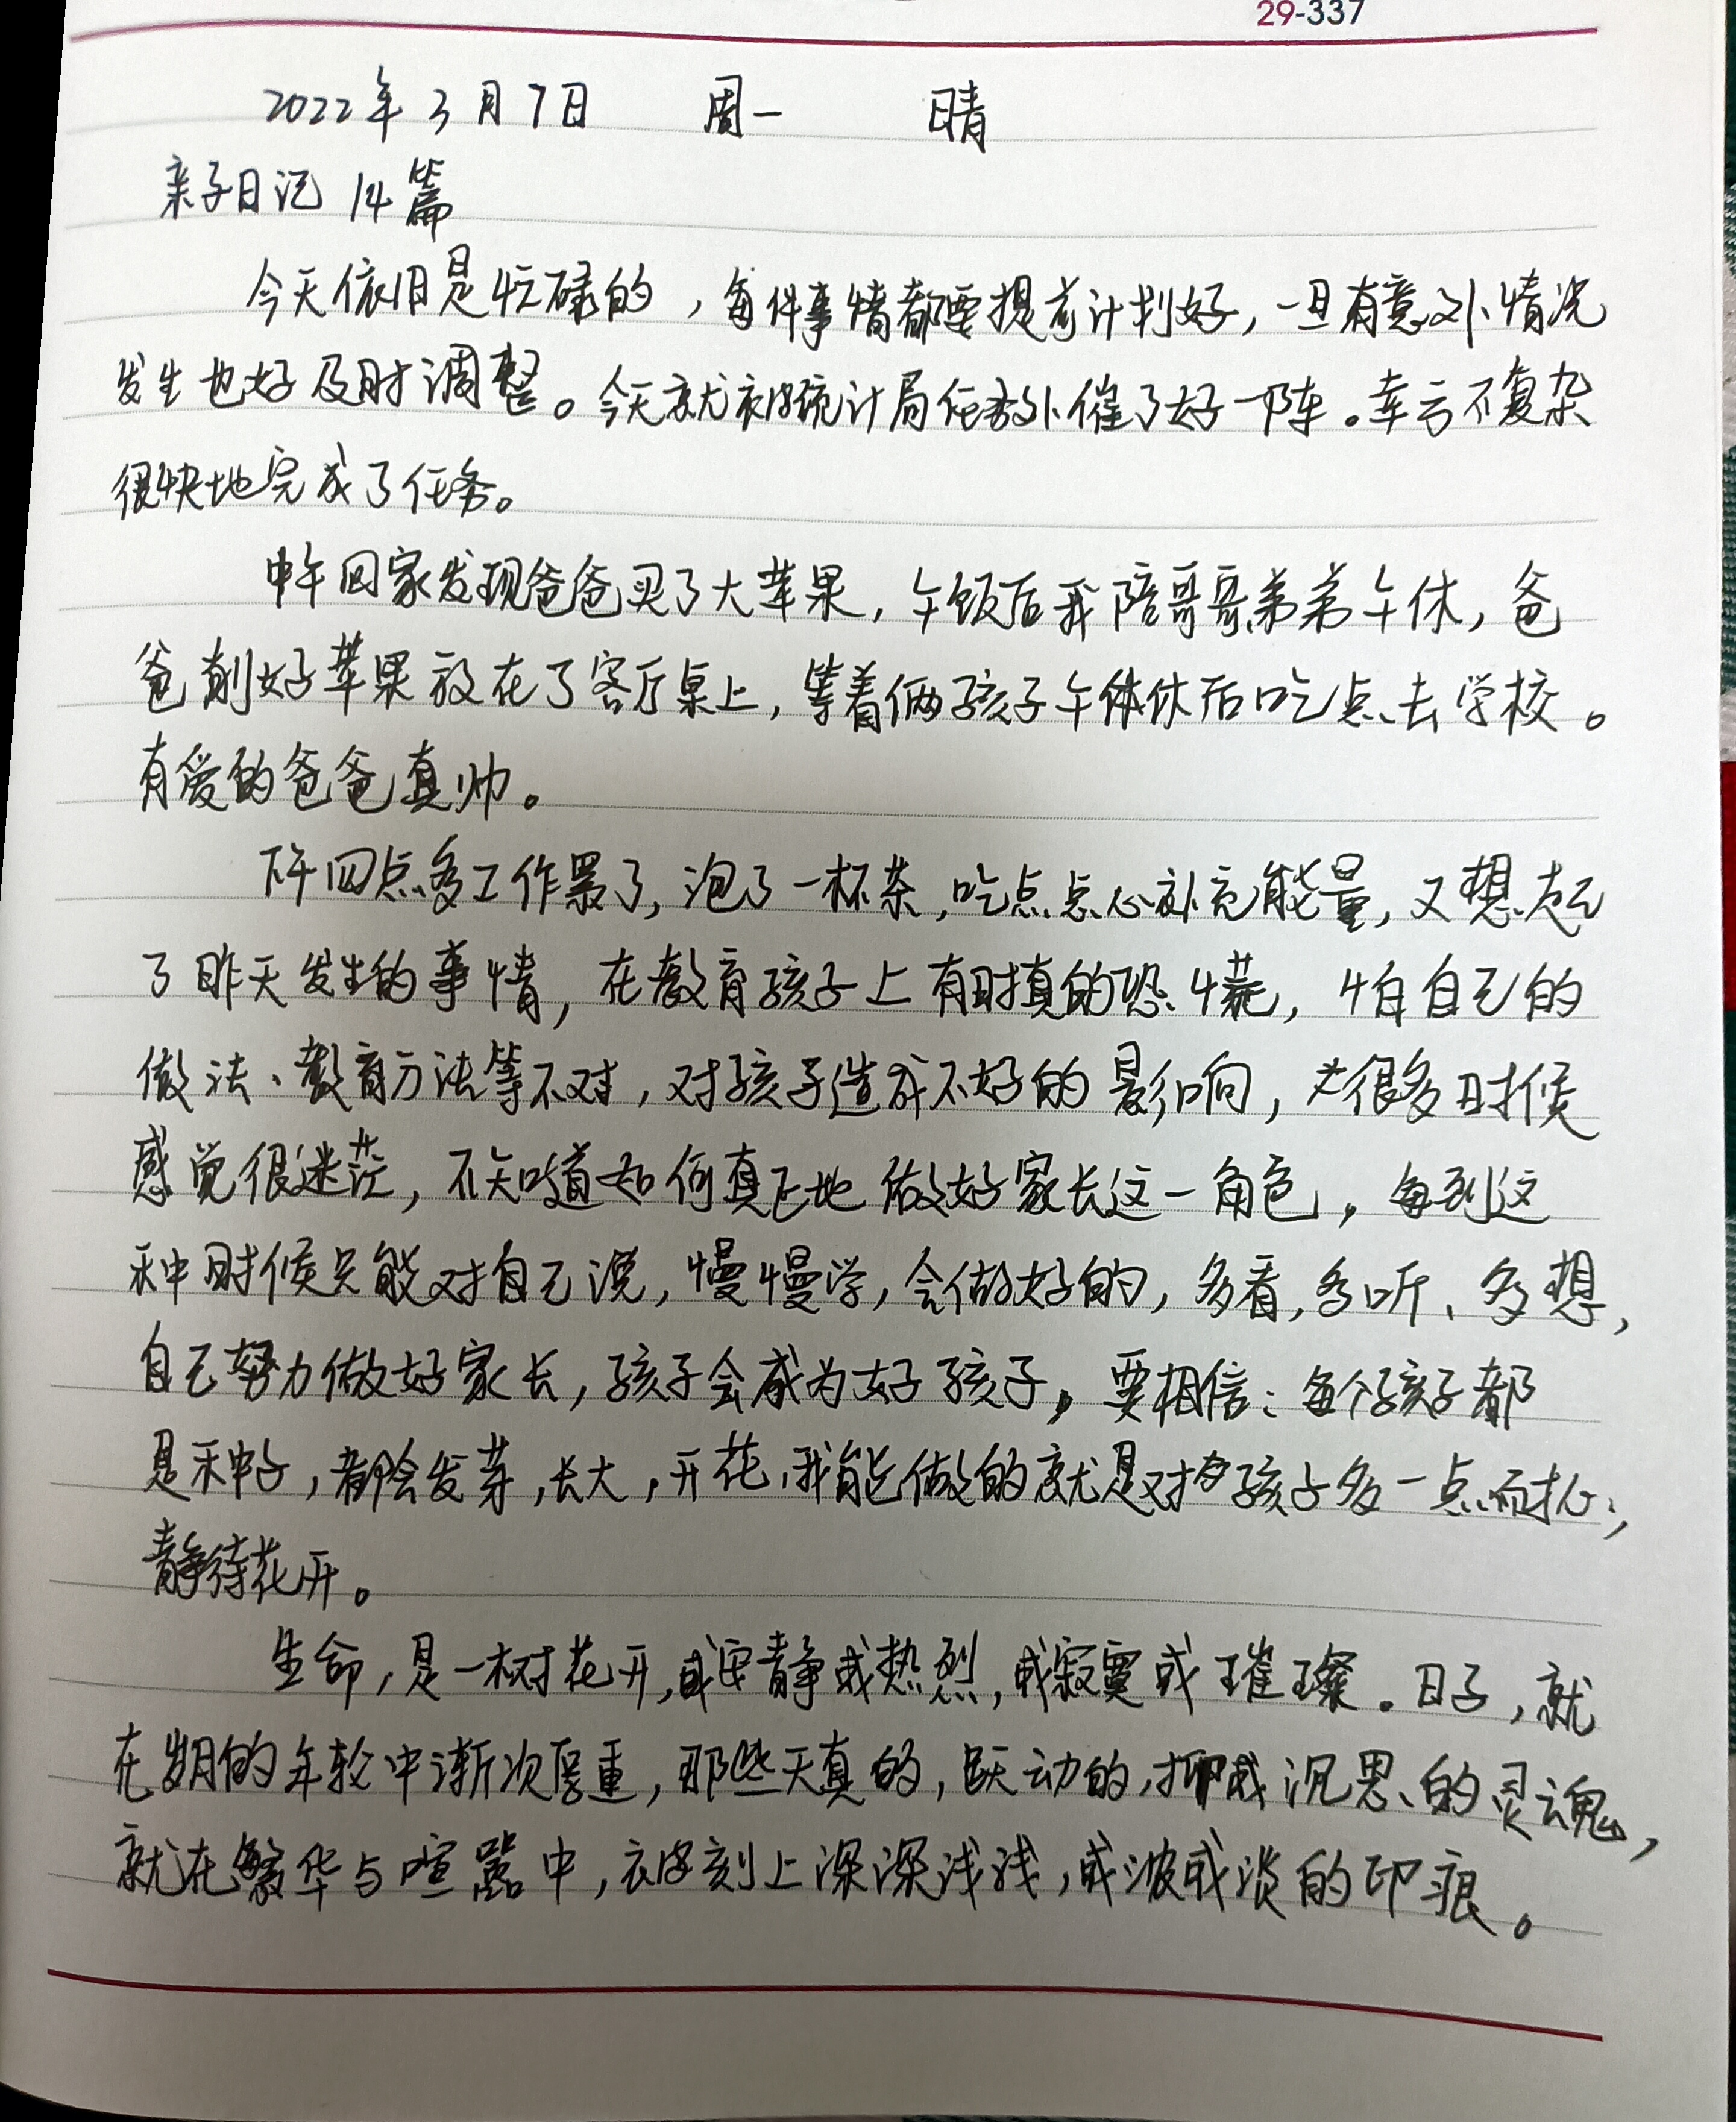 29-337
2022年3月7日 周一 晴
亲子日记 14篇
今天依旧是忙碌的，每件事情都要提前计划好，一旦有意外情况
发生也好及时调整。今天就被统计局任务外催了好一阵。幸亏不复杂
很快地完成了任务。
中午回家发现爸爸买了大苹果，午饭后我陪哥哥弟弟午休，爸
爸削好苹果放在了客厅桌上，等着俩孩子午休后吃点去学校。
有爱的爸爸真帅。
下午四点多工作累了，泡了一杯茶，吃点点心补充能量，又想起
了昨天发生的事情，在教育孩子上有时真的恐慌，怕自己的
做法、教育方法等不对，对孩子造成不好的影响，很多时候
感觉很迷茫，不知道如何真正地做好家长这一角色，每到这
种时候只能对自己说，慢慢学，会做好的，多看，多听、多想，
自己努力做好家长，孩子会成为好孩子，要相信：每个孩子都
是种子，都会发芽，长大，开花，我能做的就是对孩子多一点耐心，
静待花开。
生命，是一树花开，或安静或热烈，或寂寞或璀璨。日子，就
在岁月的年轮中渐次厚重，那些天真的，跃动的，抑或沉思的灵魂，
就在繁华与喧嚣中，被刻上深深浅浅，或浓或淡的印痕。